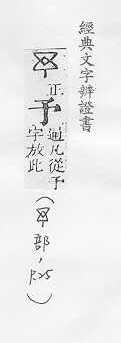 經典文字辨證書
正
予
通凡從予
字放此
(部, P25)